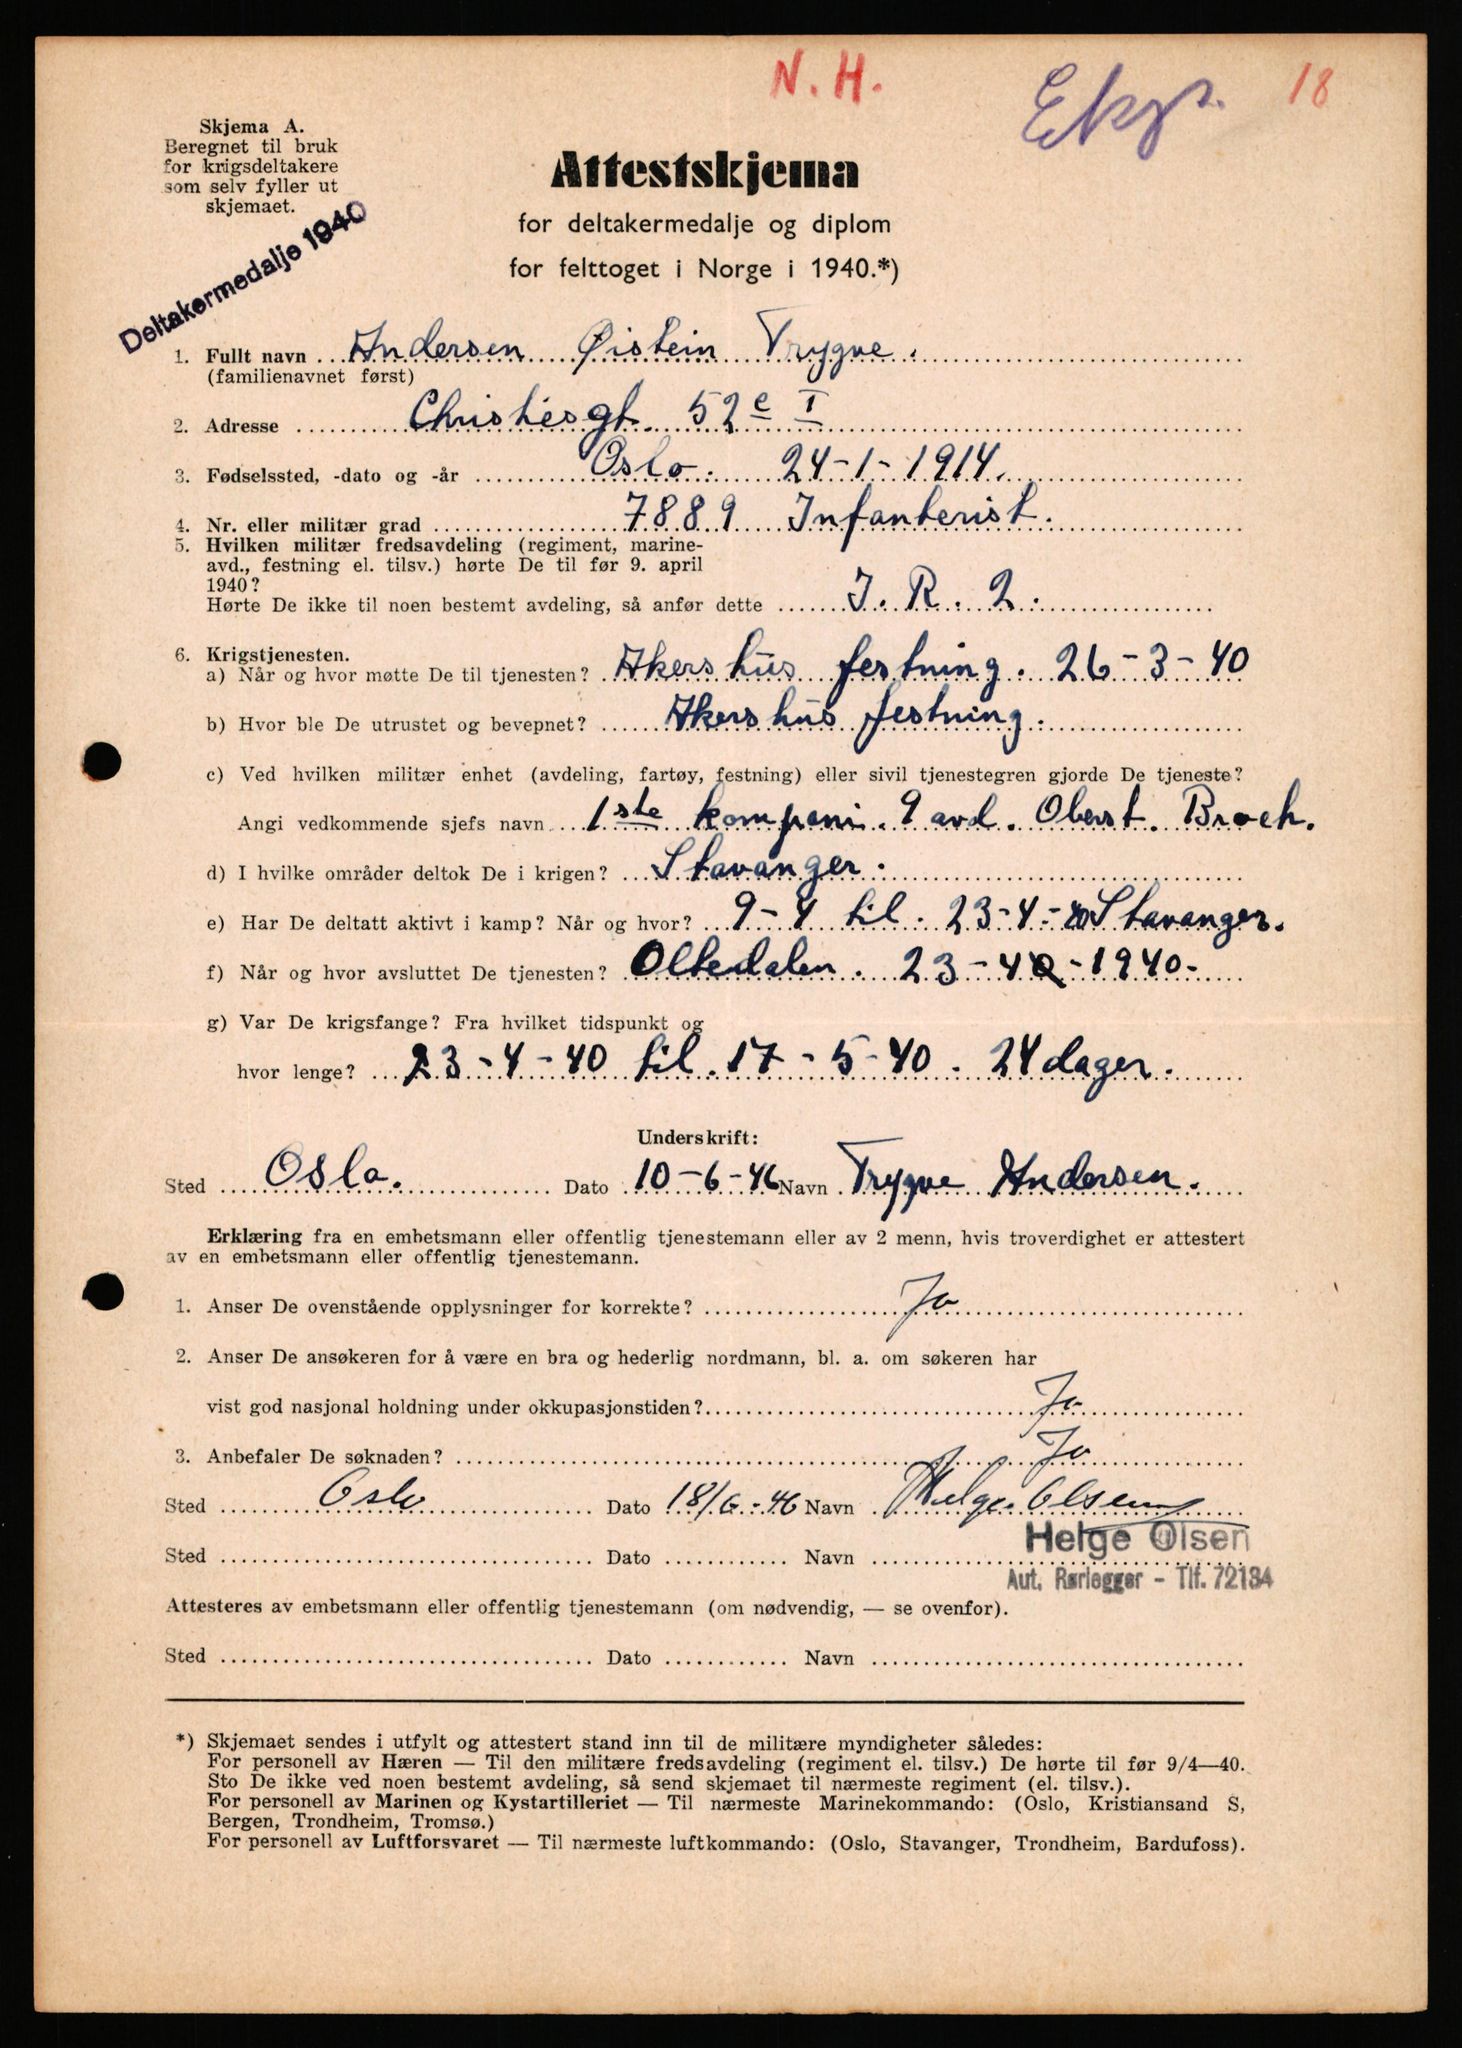 N. H.
Eksp.
18
Skjema A.
Beregnet til bruk
for krigsdeltakere
som selv fyller ut
skjemaet.
Deltakermedalje 1940
Attestskjema
for deltakermedalje og diplom
for felttoget i Norge i 1940.*)
1. Fullt navn Andersen Øistein Trygve.
(familienavnet først)
2. Adresse Christiesgt. 52 e I
3. Fødselssted, -dato og -år Oslo. 24-1-1914.
4. Nr. eller militær grad 7889 Infanterist.
5. Hvilken militær fredsavdeling (regiment, marine-
avd., festning el. tilsv.) hørte De til før 9. april
1940?
Hørte De ikke til noen bestemt avdeling, så anfør dette J. R. 2.
6. Krigstjenesten.
a) Når og hvor møtte De til tjenesten? Akershus festning. 26-3-40
b) Hvor ble De utrustet og bevepnet? Akershus festning.
c) Ved hvilken militær enhet (avdeling, fartøy, festning) eller sivil tjenestegren gjorde De tjeneste?
Angi vedkommende sjefs navn 1ste kompani. 9 avd. Oberst. Broch.
d) I hvilke områder deltok De i krigen? Stavanger.
e) Har De deltatt aktivt i kamp? Når og hvor? 9-4 til. 23-4-40 Stavanger.
f) Når og hvor avsluttet De tjenesten? Oltedalen. 23-4-1940-
g) Var De krigsfange? Fra hvilket tidspunkt og
hvor lenge? 23-4-40 til. 17-5-40. 24 dager.
Underskrift:
Sted Oslo. Dato 10-6-46 Navn Trygve Andersen.
Erklæring fra en embetsmann eller offentlig tjenestemann eller av 2 menn, hvis troverdighet er attestert
av en embetsmann eller offentlig tjenestemann.
1. Anser De ovenstående opplysninger for korrekte? Ja
2. Anser De ansøkeren for å være en bra og hederlig nordmann, bl. a. om søkeren har
vist god nasjonal holdning under okkupasjonstiden? Ja
3. Anbefaler De søknaden? Ja
Sted Oslo Dato 18/6-46 Navn Helge Olsen
Helge Olsen
Sted Dato Navn
Aut. Rørlegger - Tlf. 72184
Attesteres av embetsmann eller offentlig tjenestemann (om nødvendig, — se ovenfor).
Sted Dato Navn
*) Skjemaet sendes i utfylt og attestert stand inn til de militære myndigheter således:
For personell av Hæren — Til den militære fredsavdeling (regiment el. tilsv.) De hørte til før 9/4—40.
Sto De ikke ved noen bestemt avdeling, så send skjemaet til nærmeste regiment (el. tilsv.).
For personell av Marinen og Kystartilleriet — Til nærmeste Marinekommando: (Oslo, Kristiansand S,
Bergen, Trondheim, Tromsø.)
For personell av Luftforsvaret — Til nærmeste luftkommando: (Oslo, Stavanger, Trondheim, Bardufoss).